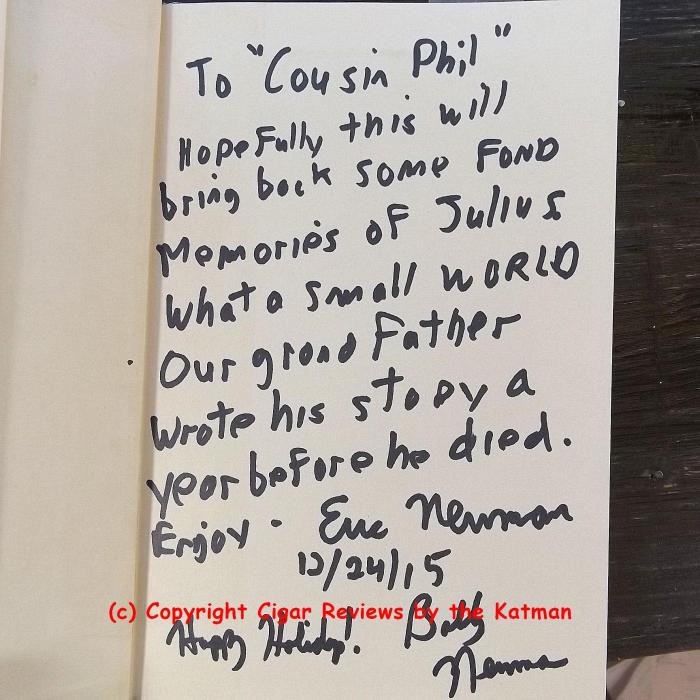 To "Cousin Phil"
Hopefully this will
bring back some FOND
Memories of Julius
What a small WORLD
Our grand Father
Wrote his story a
year before he died.
Enjoy - Eric Newman
12/24/15
(c) Copyright Cigar Reviews by the Katman
Happy Holidays! Bobby
Newman